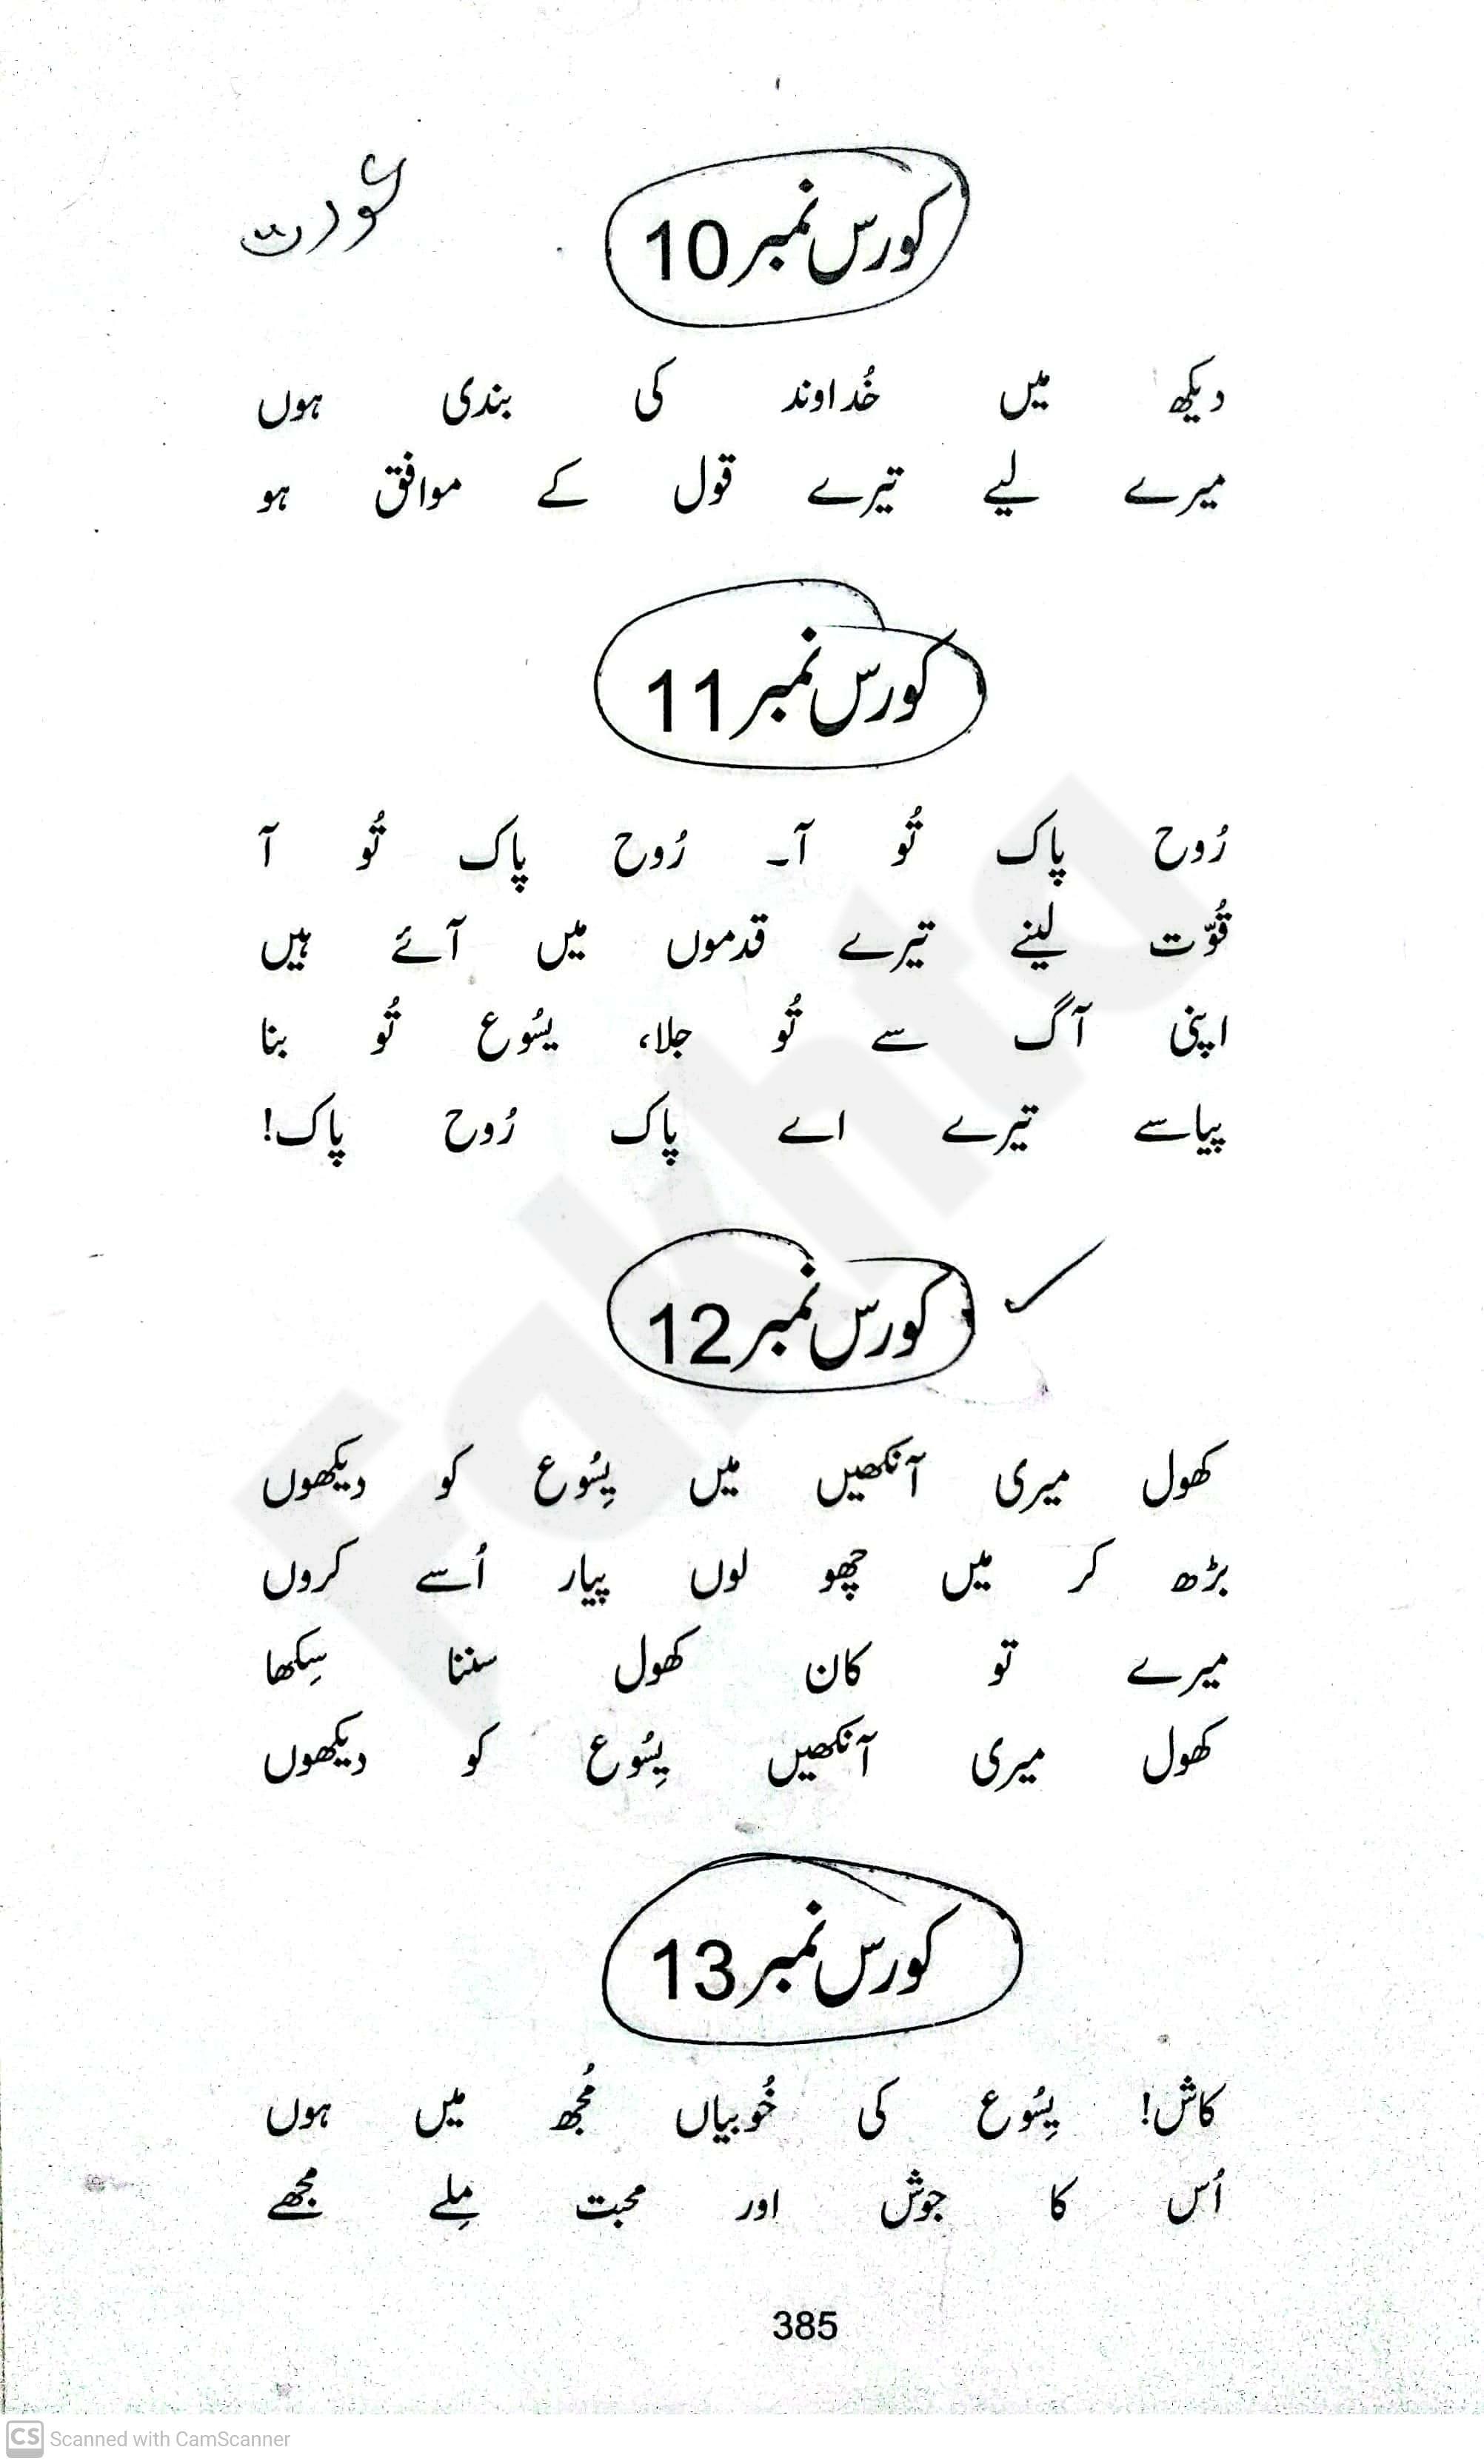 عورت
کورس نمبر 10
دیکھ میں خُداوند کی بندی ہوں
میرے لیے تیرے قول کے موافق ہو
کورس نمبر 11
رُوح پاک تُو آ۔ رُوح پاک تُو آ
قُوّت لینے تیرے قدموں میں آئے ہیں
اپنی آگ سے تُو جلا، یسُوع تُو بنا
پیاسے تیرے اے پاک رُوح پاک!
کورس نمبر 12
کھول میری آنکھیں میں یِسُوع کو دیکھوں
بڑھ کر میں چھو لوں پیار اُسے کروں
میرے تو کان کھول سننا سِکھا
کھول میری آنکھیں یِسُوع کو دیکھوں
کورس نمبر 13
کاش! یِسُوع کی خُوبیاں مُجھ میں ہوں
اُس کا جوش اور محبت مِلے مجھے
385
Fakhra
CS Scanned with CamScanner